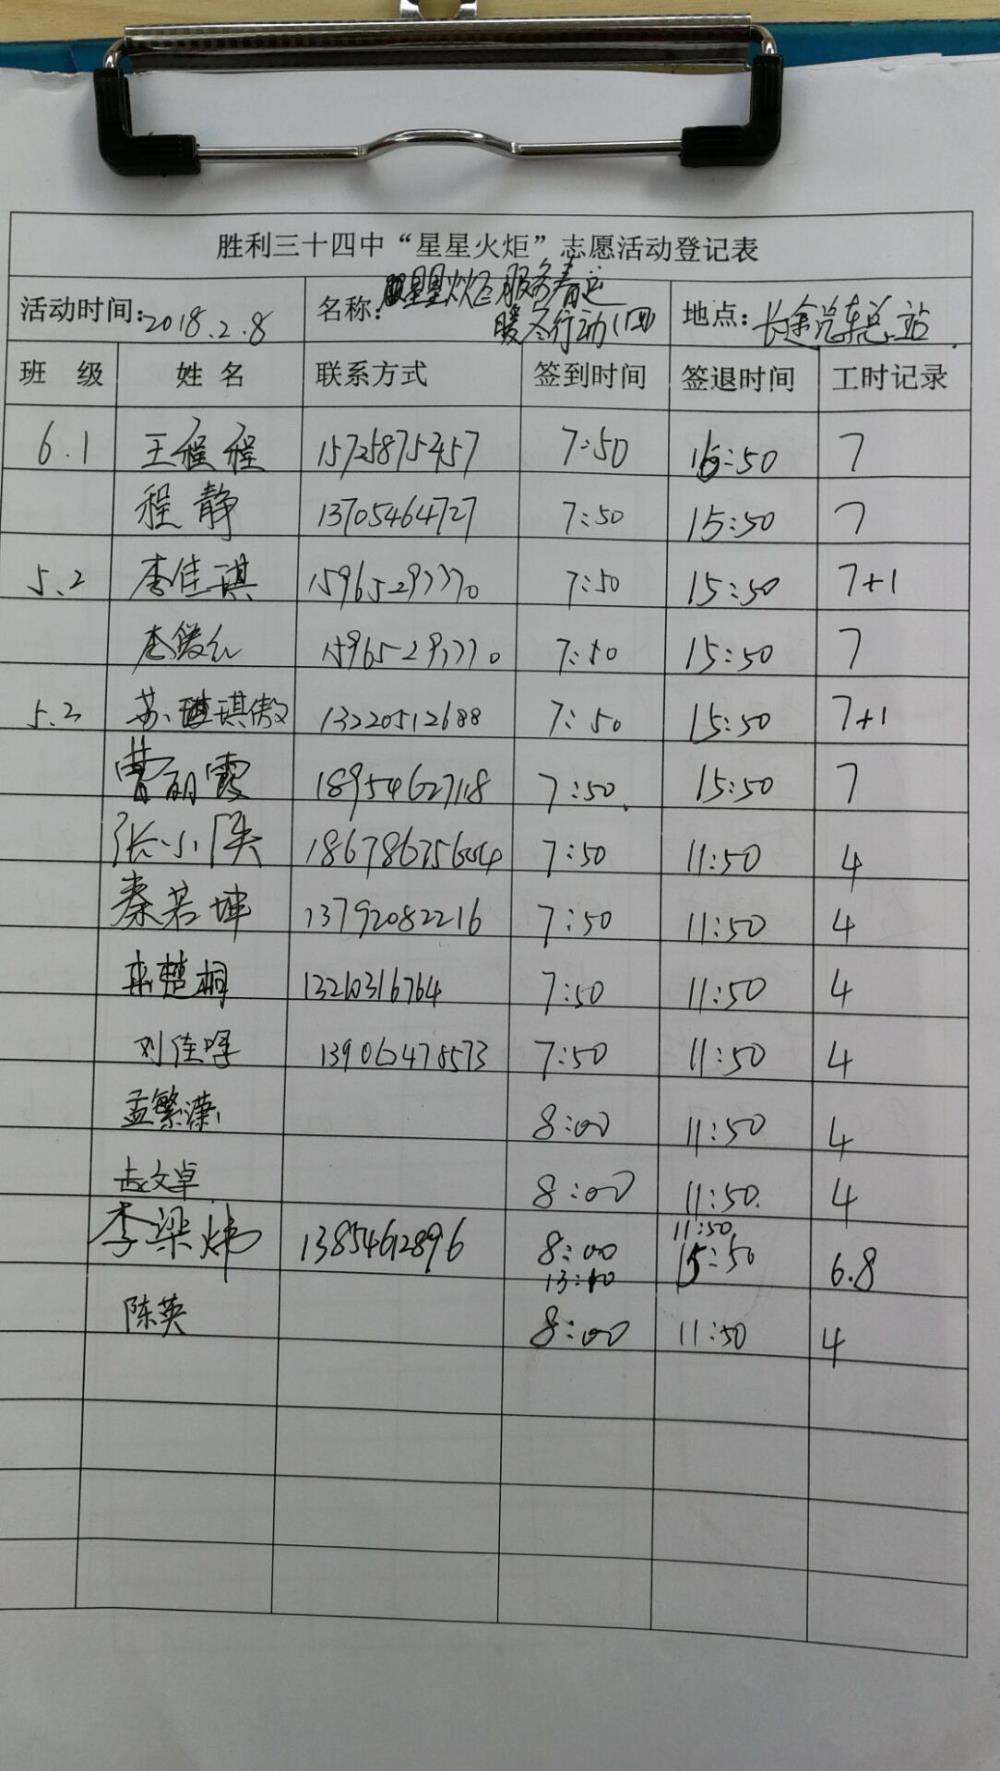 胜利三十四中“星星火炬”志愿活动登记表
活动时间:2018.2.8 名称:星星火炬服务春运 地点:长途汽车总站.
暖冬行动(四)
班 级 姓 名 联系方式 签到时间 签退时间 工时记录
6.1 王程程 15725875457 7:50 15:50 7
程静 13705464727 7:50 15:50 7
5.2 李佳琪 15965297770 7:50 15:50 7+1
15965297770 7:50 15:50 7
5.2 苏琪傲 13220512688 7:50 15:50 7+1
曹丽霞 18954627118 7:50. 15:50 7
张小 7:50 11:50 4
秦若坤 13792082216 7:50 11:50 4
楚桐 7:50 11:50 4
刘佳 7:50 11:50 4
孟繁潇 8:00 11:50 4
文卓 8:00 11:50. 4
11:50
李梁炜 13854612896 8:00 15:50 6.8
13:10
陈英 8:00 11:50 4